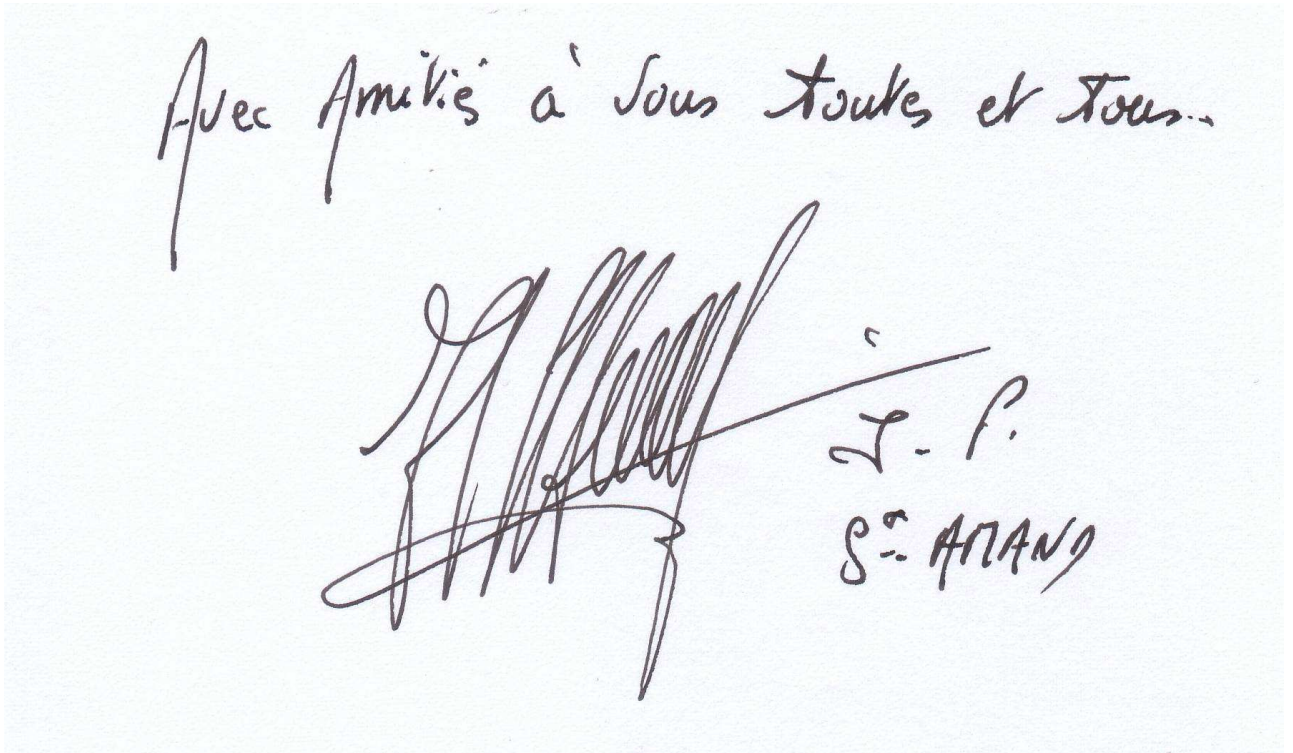 Avec Amitiés à vous toutes et tous...
J-P.
St AMAND